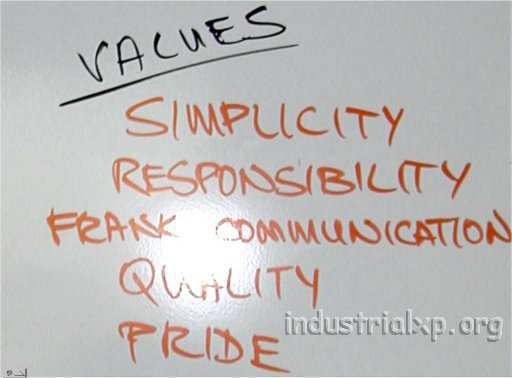 VALUES
SIMPLICITY
RESPONSIBILITY
FRANK COMMUNICATION
QUALITY
PRIDE
industrialxp.org